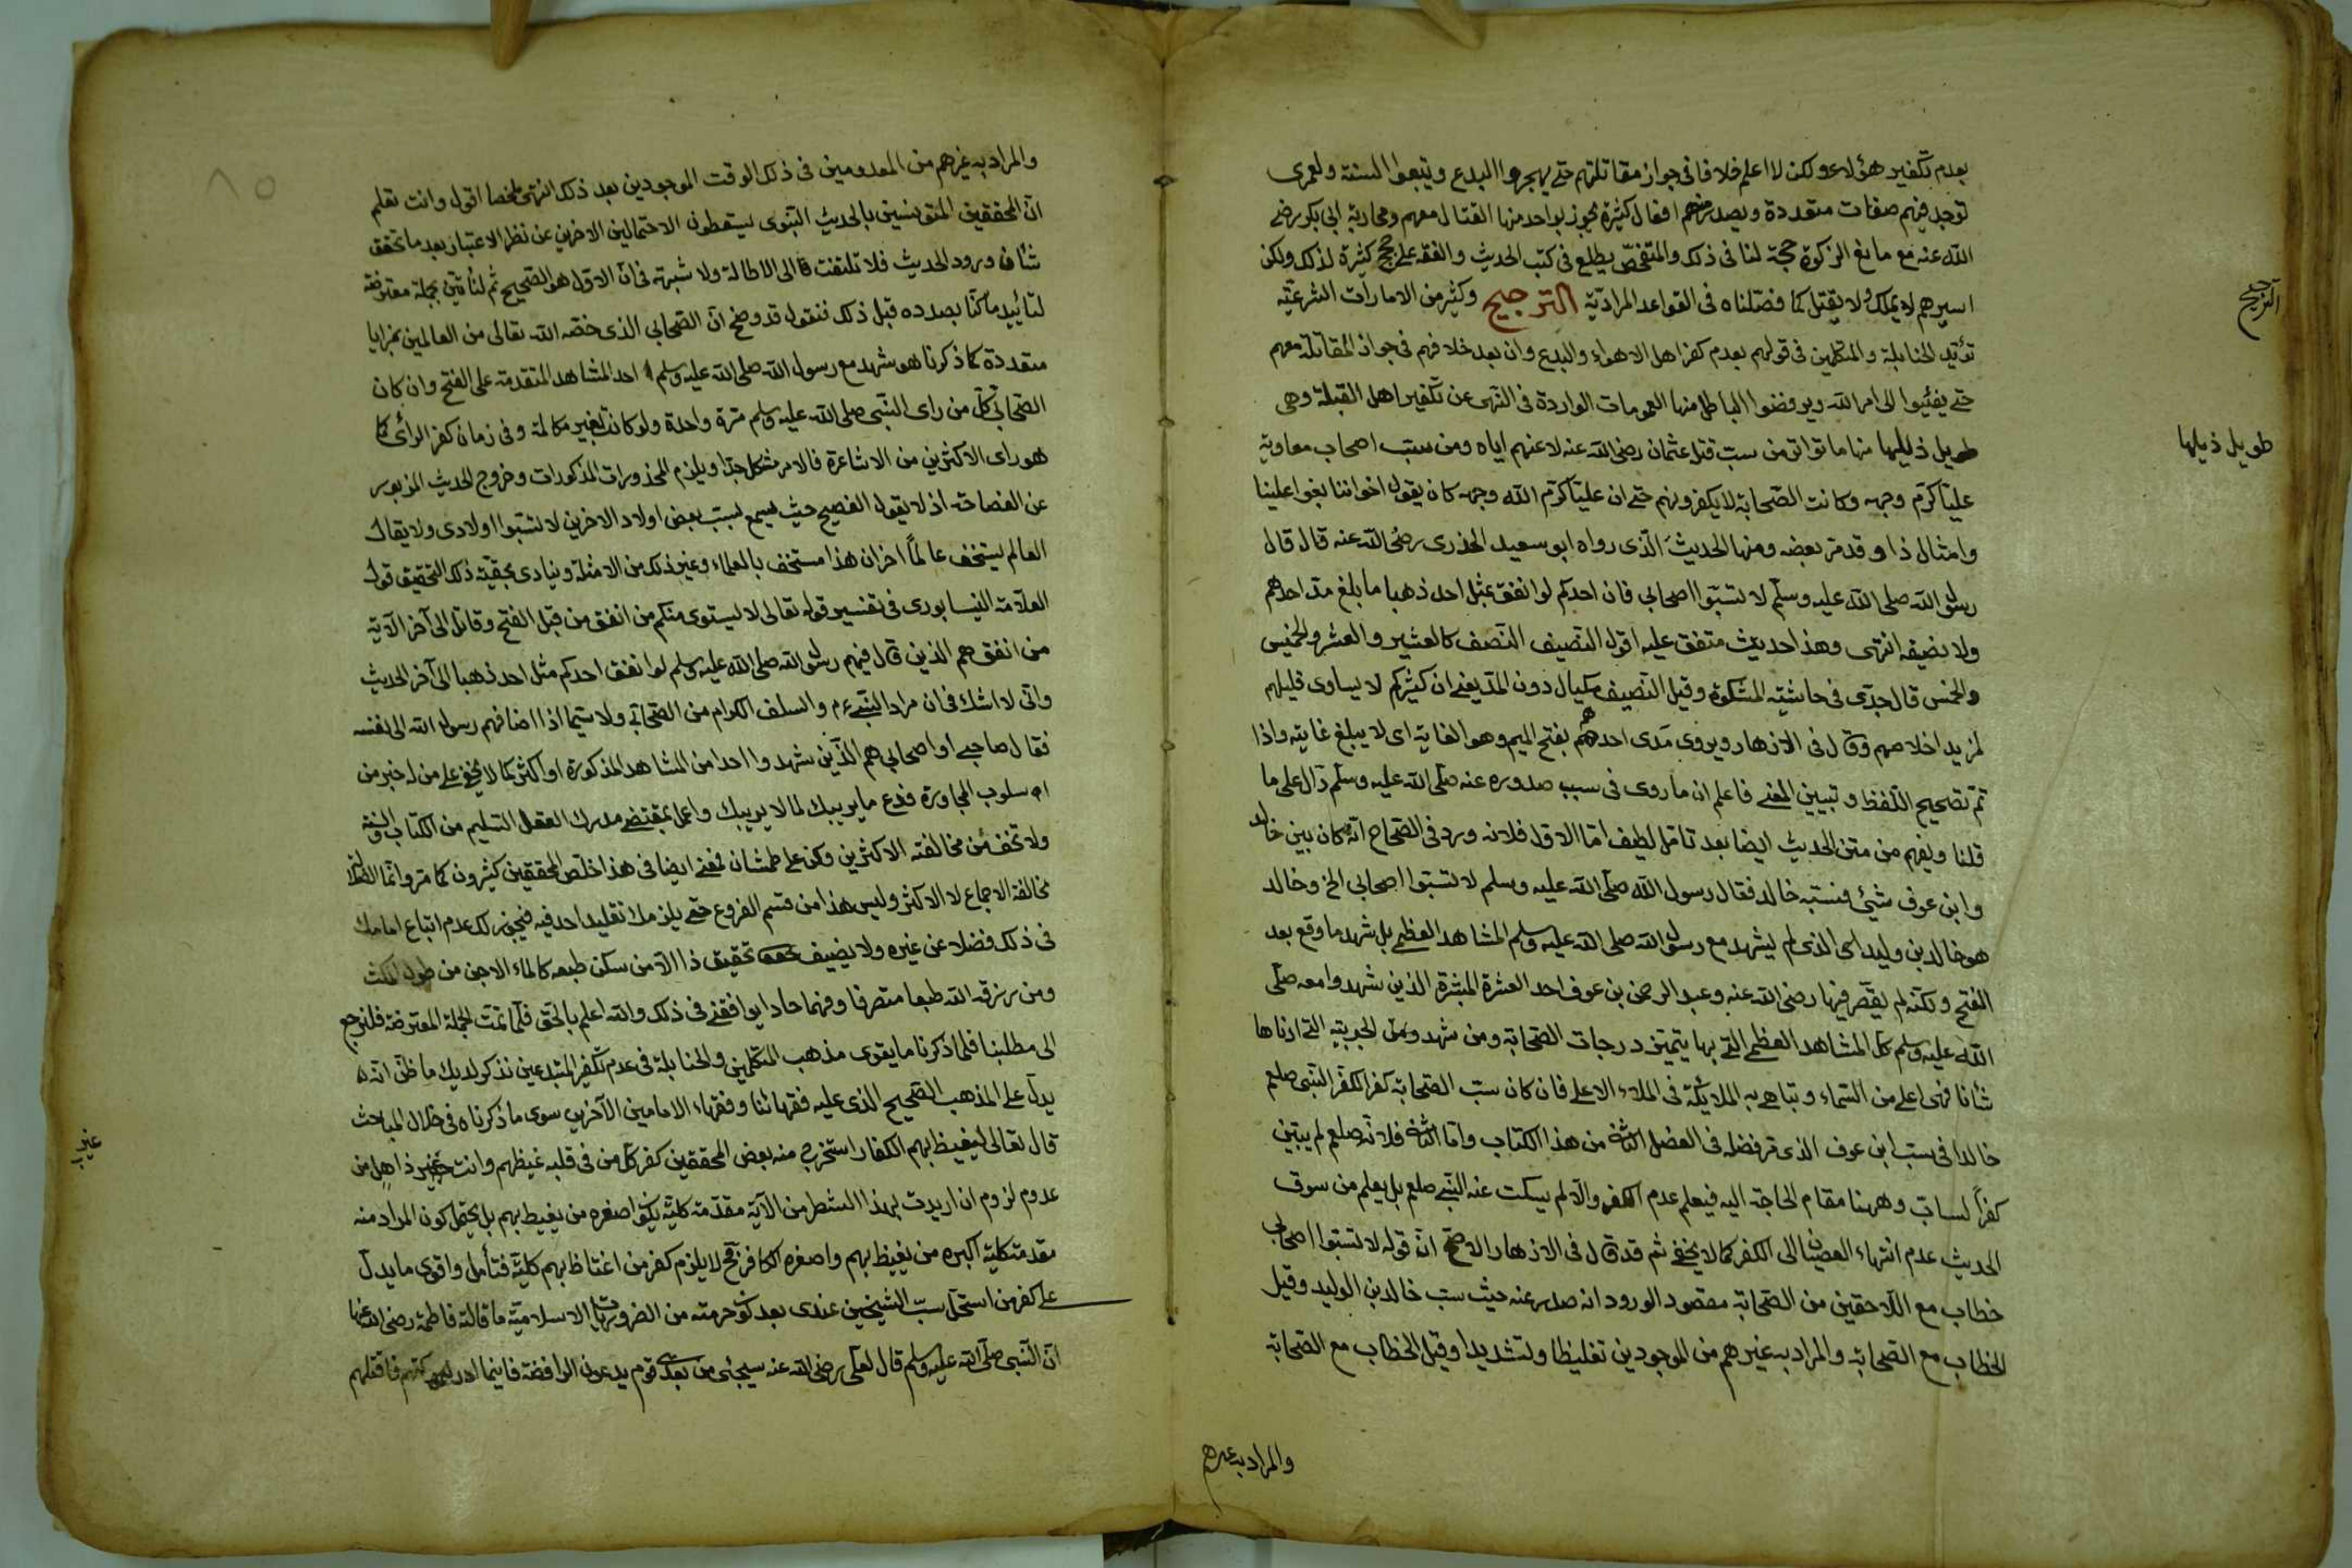 بعدم تكفير هؤلاء ولكن لا اعلم خلافا فى جواز مقاتلتهم حتى يهجروا البدع ويتبعوا السنة ولعمرى
توجد فيهم صفات متعددة ويصدر منهم افعال كثيرة يجوز بواحد منها القتال معهم ومحاربة ابى بكر رضى
الله عنه مع مانع الزكوة حجة لنا فى ذلك والمتفحص يطلع فى كتب الحديث والفقه على حجج كثيرة لذلك ولكن
اسيرهم لا يملك ولا يقتل كما فصلناه فى القواعد المرادية الترجيح وكثير من الامارات الشرعية
الترجيح
تؤيد الحنابلة والمتكلمين فى قولهم بعدم كفر اهل الاهواء والبدع وان بعد خلافهم فى جواز المقاتلة معهم
حتى يفيئوا الى امر الله ويرفضوا الباطل منها العمومات الواردة فى النهى عن تكفير اهل القبلة وهى
طويل ذيلها منها ما تواتر من سب قتل عثمان رضى الله عنه لاعنهم اياه ومن سب اصحاب معاوية
طويل ذيلها
عليا كرم وجهه وكانت الصحابة لا يكفرونهم حتى ان عليا كرم الله وجهه كان يقول اخواننا بغوا علينا
وامثال ذا وقد مر بعضه ومنها الحديث الذى رواه ابو سعيد الخدرى رضى الله عنه قال قال
رسول الله صلى الله عليه وسلم لا تسبوا اصحابى فان احدكم لو انفق مثل احد ذهبا ما بلغ مد احدهم
ولا نصيفه انتهى وهذا حديث متفق عليه اقول النصيف النصف كالعشير والعشر والخميس
والخمس قال جدى فى حاشية المشكوة وقيل النصيف مكيال دون المد يعنى ان كثيركم لا يساوى قليلهم
لمزيد اخلاصهم وقال فى الازهار ويروى مَدى احدهم بفتح الميم وهو الغاية اى لا يبلغ غايته واذا
تم تصحيح اللفظ وتبيين المعنى فاعلم ان ما روى فى سبب صدوره عنه صلى الله عليه وسلم دال على ما
قلنا ويفهم من متن الحديث ايضا بعد تامل لطيف اما الاول فلانه ورد فى الصحاح انه كان بين خالد
وابن عوف شئ فسبه خالد فقال رسول الله صلى الله عليه وسلم لا تسبوا اصحابى الخ وخالد
هو خالد بن وليد اى الذى لم يشهد مع رسول الله صلى الله عليه وسلم المشاهد العظمى بل شهد ما وقع بعد
الفتح ولكنه لم يقصر فيها رضى الله عنه وعبد الرحمن بن عوف احد العشرة المبشرة الذين شهدوا معه صلى
الله عليه وسلم كل المشاهد العظمى التى بها يتميز درجات الصحابة ومن شهد ومن الحديبيه التى ادناها
شانا فهى اعلى من السماء وتباهى به الملائكة فى الملاء الاعلى فان كان سب الصحابة كفرا لكفر النبى صلعم
خالدا فى سب ابن عوف الذى مر فضله فى الفصل الثانى من هذا الكتاب واما الثانى فلانه صلعم لم يبين
كفرا لساب وههنا مقام الحاجة اليه فيعلم عدم الكفر والا لم يسكت عنه النبى صلعم بل يعلم من سوق
الحديث عدم انتهاء العصيان الى الكفر كما لا يخفى ثم قد قال فى الازهار الاصح ان قوله لا تسبوا اصحابى
خطاب مع اللاحقين من الصحابة مقصود الورود انه صدر عنه حيث سب خالد بن الوليد وقيل
الخطاب مع الصحابة والمراد به غيرهم من الموجودين تغليظا وتشديدا وقيل الخطاب مع الصحابة
والمراد به غيرهم
والمراد به غيرهم من المعدومين فى ذلك الوقت الموجودين بعد ذلك انتهى ملخصا اقول وانت تعلم
ان المحققين المتونسين بالحديث النبوى يسقطون الاحتمالين الاخرين عن نظر الاعتبار بعد ما تحقق
شان ورود الحديث فلا تلتفت الى الاطالة ولا شبهة فى ان الاول هو الصحيح ثم لنأتين بجملة معترضة
لتأييد ما كنا بصدده قبل ذلك فنقول قد وضح ان الصحابى الذى خصه الله تعالى من العالمين بمزايا
متعددة كما ذكرنا هو شهد مع رسول الله صلى الله عليه وسلم احد المشاهد المتقدمة على الفتح وان كان
الصحابى كل من راى النبى صلى الله عليه وسلم مرة واحدة ولو كانت بغير مكالمة وفى زمان كفر الرائى كما
هو راى الاكثرين من الاشاعرة فالامر مشكل جدا ويلزم المحذورات المذكورات وخروج الحديث المزبور
عن الفصاحة اذ لا يقول الفصيح حيث يسمع بسب بعض اولاد الاخرين لا تسبوا اولادى ولا يقال
العالم يستخف عالماً اخر ان هذا مستخف بالعلماء وغير ذلك من الامثلة وينادى بحقية ذلك التحقيق قول
العلامة النيسابورى فى تفسير قوله تعالى لا يستوى منكم من انفق من قبل الفتح وقاتل الى آخر الآية
من انفق هم الذين قال فيهم رسول الله صلى الله عليه وسلم لو انفق احدكم مثل احد ذهبا الى آخر الحديث
وانى لا اشك فى ان مراد النبى ءم والسلف الكرام من الصحابى ولا سيما اذا اضافهم رسول الله الى نفسه
فقال صاحبى او اصحابى هم الذين شهدوا احدا من المشاهد المذكورة او اكثر كما لا يخفى على من له خبر من
اسلوب المحاورة فدع ما يريبك لما لا يريبك واعمل بمقتضى مدرك العقل السليم من الكتاب والسنة
ولا تخف من مخالفة الاكثرين وكن على طمشان فمعنى ايضا فى هذا خلص المحققين كثيرون كما مر وانما الضلال
مخالفة الاجماع لا الاكثر وليس هذا من قسم الفروع حتى يلزمك تقليد احد فيه فيجوز لك عدم اتباع امامك
فى ذلك فضلا عن غيره ولا يضيف تحقيق ذا الا من سكن طبعه كالماء الاجن من طول المكث
ومن يرزقه الله طبعا متصرفا وفهما حادا يوافقنى فى ذلك والله اعلم بالحق فلما تمت الجملة المعترضة فلنرجع
الى مطلبنا فلما ذكرنا ما يقوى مذهب المتكلمين والحنابلة فى عدم تكفير المتبدعين نذكر لديك ما ظن انه
يدل على المذهب الصحيح الذى عليه فقهائنا وفقهاء الامامين الآخرين سوى ما ذكرناه فى خلال المباحث
قال تعالى ليغيظ بهم الكفار استخرج منه بعض المحققين كفر كل من فى قلبه غيظهم وانت غير ذاهل من
عدم لزوم ان اريدت بهذا الشطر من الآية مقدمة كلية يكون اصغره من يغيظ بهم بل يحتمل كون المراد منه
مقدمة كلية اكبره من يغيظ بهم واصغره الكافر فح لا يلزم كفر من اغتاظ بهم كلية فتأمل واقوى ما يدل
على كفر من استحل سب الشيخين عندى بعد كون حرمته من الضروريات الاسلامية ما قالته فاطمة رضى الله عنها
ان النبى صلى الله عليه وسلم قال لعلى رضى الله عنه سيجئى من بعدى قوم يدعون الرافضة فاينما ادركتهم فاقتلهم